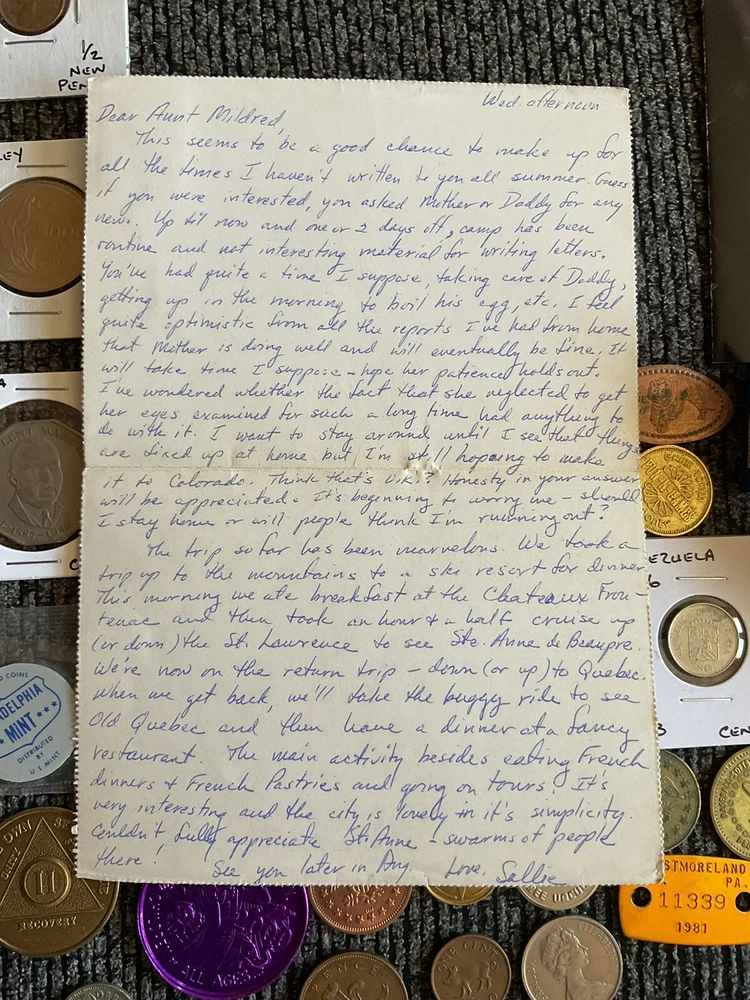 1/2
NEW
PEN
Wed. afternoon
Dear Aunt Mildred,
This seems to be a good chance to make up for
all the times I haven't written to you all summer. Guess
if you were interested, you asked Mother or Daddy for any
news. Up til now and one or 2 days off, camp has been
routine and not interesting material for writing letters.
You've had quite a time I suppose, taking care of Daddy,
getting up in the morning to boil his egg, etc. I feel
quite optimistic from all the reports I've had from home
that Mother is doing well and will eventually be fine. It
will take time I suppose - hope her patience holds out.
I've wondered whether the fact that she neglected to get
her eyes examined for such a long time had anything to
do with it. I want to stay around until I see that things
are fixed up at home but I'm still hopeing to make
it to Colorado. Think that's O.K.? Honesty in your answer
will be appreciated. It's beginning to worry me - should
I stay home or will people think I'm running out?
The trip so far has been marvelous. We took a
trip up to the mountains to a ski resort for dinner
This morning we ate breakfast at the Chateaux Fron-
tenac and then took an hour & a half cruise up
(or down) the St. Lawrence to see Ste. Anne de Beaupre.
We're now on the return trip - down (or up) to Quebec.
When we get back, we'll take the buggy ride to see
Old Quebec and then have a dinner at a fancy
restaurant. The main activity besides eating French
dinners & French Pastries and going on tours! It's
very interesting and the city is lovely in it's simplicity.
Couldn't fully appreciate St. Anne - swarms of people
there!
See you later in Aug. Love, Sallie
LEY
A
EZUELA
6
B
CEN
D COINS
ADELPHIA
MINT
DISTRIBUTED
BY
U.S. MINT
OWN
II
RECOVERY
ALL AGES
PENCE
ONE CENT
STMORELAND
PA.
11339
1981